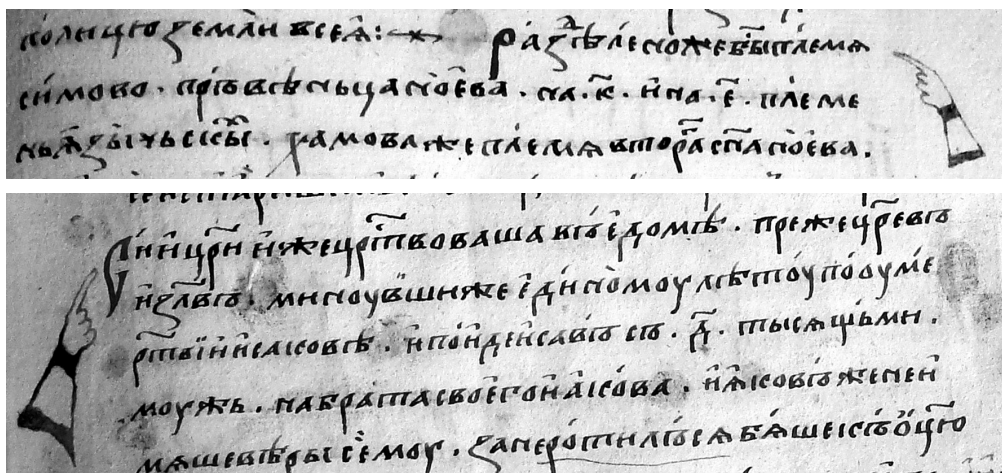 полнцю земли всеѧ҄:
Раздѣлено же бы́ племѧ
си́мово . пръвѣньца но́ева . на . к҃ . и҆ на . е҃ . племе
нъ ꙗ҆зы́чьскы . хамова же племѧ вторагѡ сн҃а но́ева .
Сии цр҃и и҆же цр҃ствоваша въ е҆домѣ . преже цр҃евъ
и҆зл҃въ . мноу́вшиже е҆ди́номоу лѣтоу по оу҆ме
ртвїи и҆саковѣ . и҆ по́иде и҆савъ съ . д҃ . тысѧщьми .
моужь . на брата своего и҆а҆ко́ва . и҆ꙗ҆ковъ же не и҆
мѧше вѣры се́моу . зане ро́тилъсѧ бѧ́ше къ ѻ҆ц҃ю